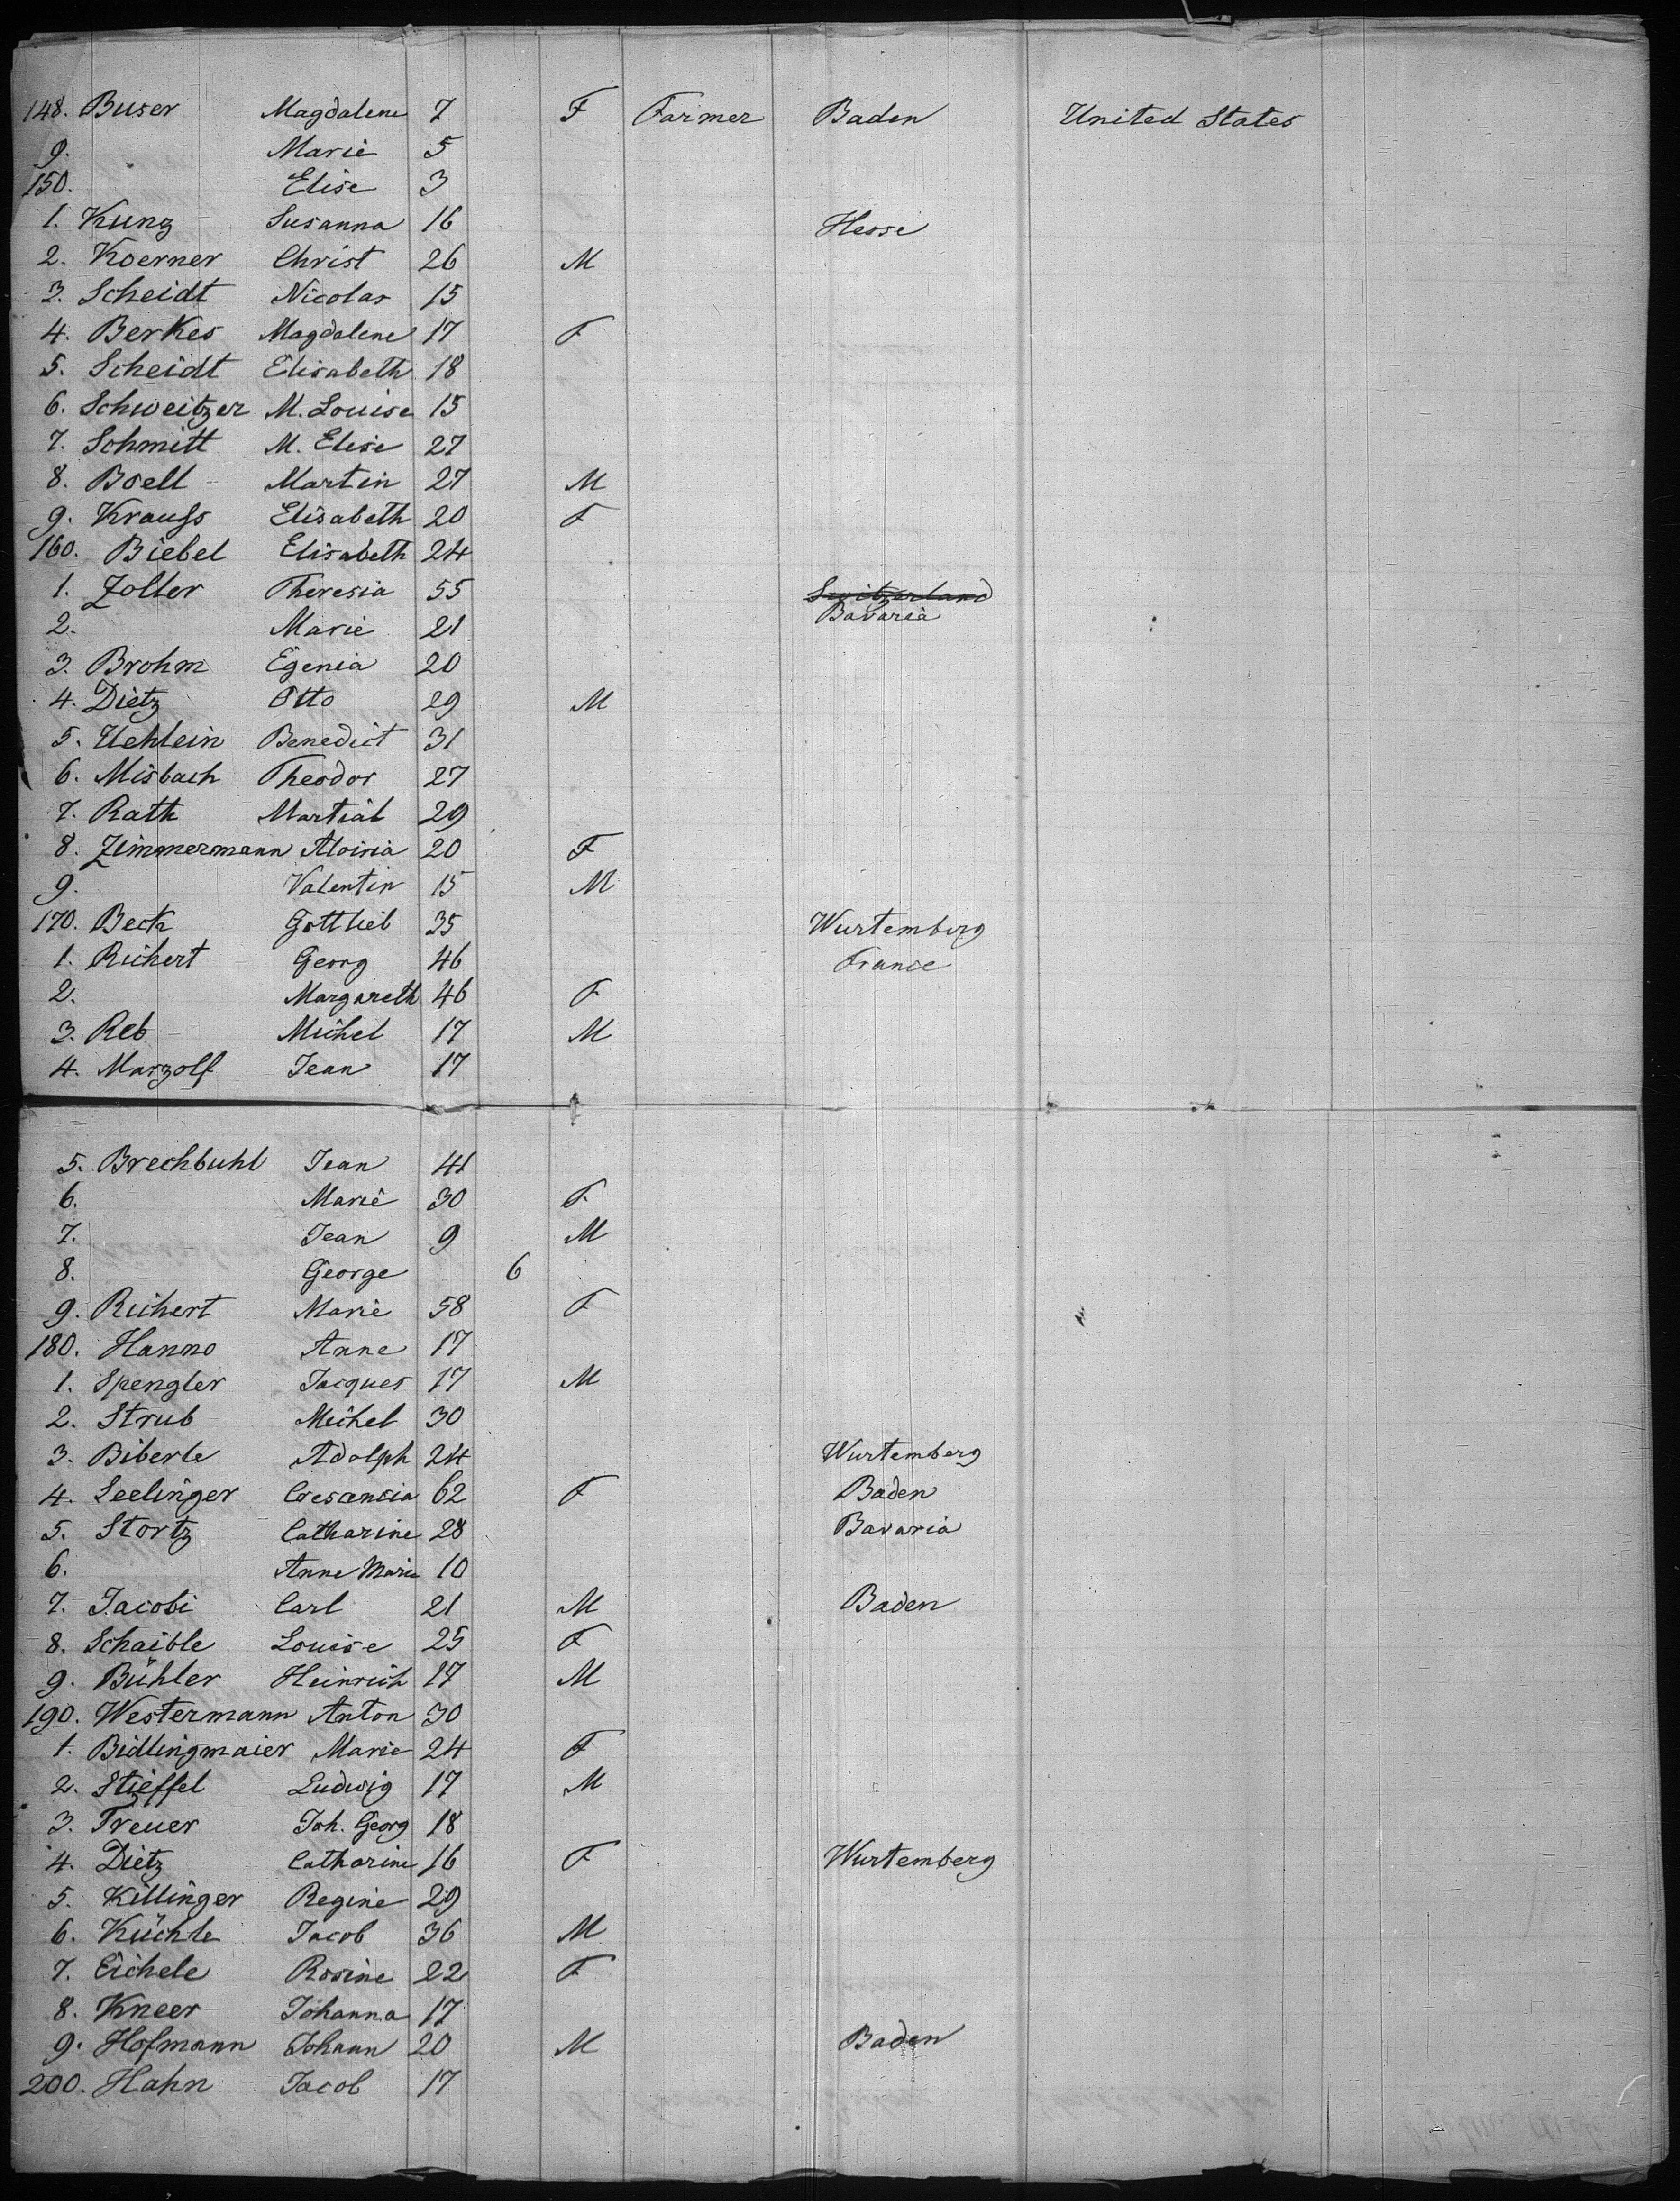 148. Buser Magdalene 7 F Farmer Baden United States
9. Marie 5
150. Elise 3
1. Kunz Susanna 16 Hesse
2. Koerner Christ 26 M
3. Scheidt Nicolas 15
4. Berkes Magdalene 17 F
5. Scheidt Elisabeth 18
6. Schweitzer M. Louise 15
7. Schmitt M. Elise 27
8. Boell Martin 27 M
9. Krauss Elisabeth 20 F
160. Biebel Elisabeth 24
1. Zoller Theresia 55 Switzerland
Bavaria
2. Marie 21
3. Brohm Egenia 20
4. Dietz Otto 29 M
5. Uehlein Benedict 31
6. Misbach Theodor 27
7. Rath Martial 29
8. Zimmermann Aloisia 20 F
9. Valentin 15 M
170. Beck Gottlieb 35 Wurtemberg
1. Richert Georg 46 France
2. Margareth 46 F
3. Reb Michel 17 M
4. Marzolf Jean 17
5. Brechbuhl Jean 41
6. Marie 30 F
7. Jean 9 M
8. George 6
9. Richert Marie 58 F
180. Hanno Anne 17
1. Spengler Jacques 17 M
2. Strub Michel 30
3. Biberle Adolph 24 Wurtemberg
4. Seelinger Crescensia 62 F Baden
5. Stortz Catharine 28 Bavaria
6. Anne Marie 10
7. Jacobi Carl 21 M Baden
8. Schaible Louise 25 F
9. Bühler Heinrich 17 M
190. Westermann Anton 30
1. Bidlingmaier Marie 24 F
2. Stieffel Ludwig 17 M
3. Treuer Joh. Georg 18
4. Dietz Catharine 16 F Wurtemberg
5. Killinger Regine 29
6. Küchle Jacob 36 M
7. Eichele Rosine 22 F
8. Kneer Johanna 17
9. Hofmann Johann 20 M Baden
200. Hahn Jacob 17